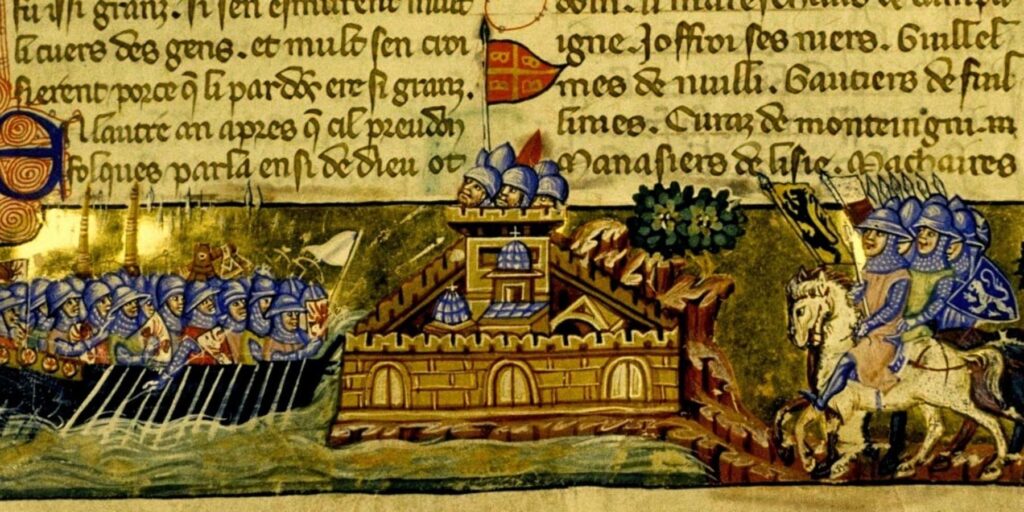 fu issi granz. Si sen esmurent mult
li cuers des gens. et mult sen croi
sierent porce q̃ li pardõs ere si granz.
A lautre an apres q̃ cil preudom
folques parla ensi de dieu ot
li mareschaus de campai
igne. Joffroi ses niers. Guillel
mes de nuilli. Gautiers de fuil
limes. Euraz de monteingni.
Manasiers de lisle. Machaires